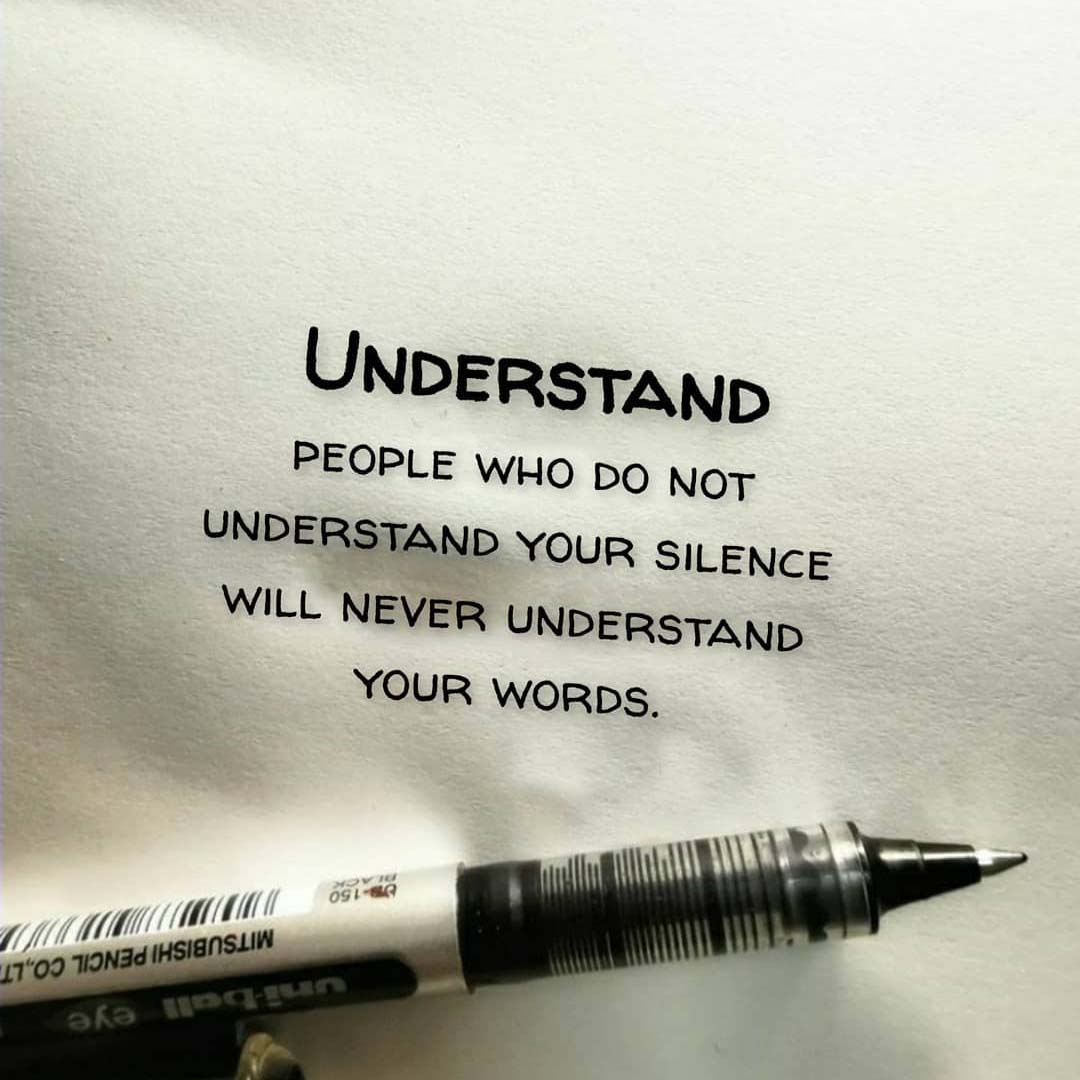 UNDERSTAND
PEOPLE WHO DO NOT
UNDERSTAND YOUR SILENCE
WILL NEVER UNDERSTAND
YOUR WORDS.
UB-150
BLACK
MITSUBISHI PENCIL CO.,LT
uni-ball eye